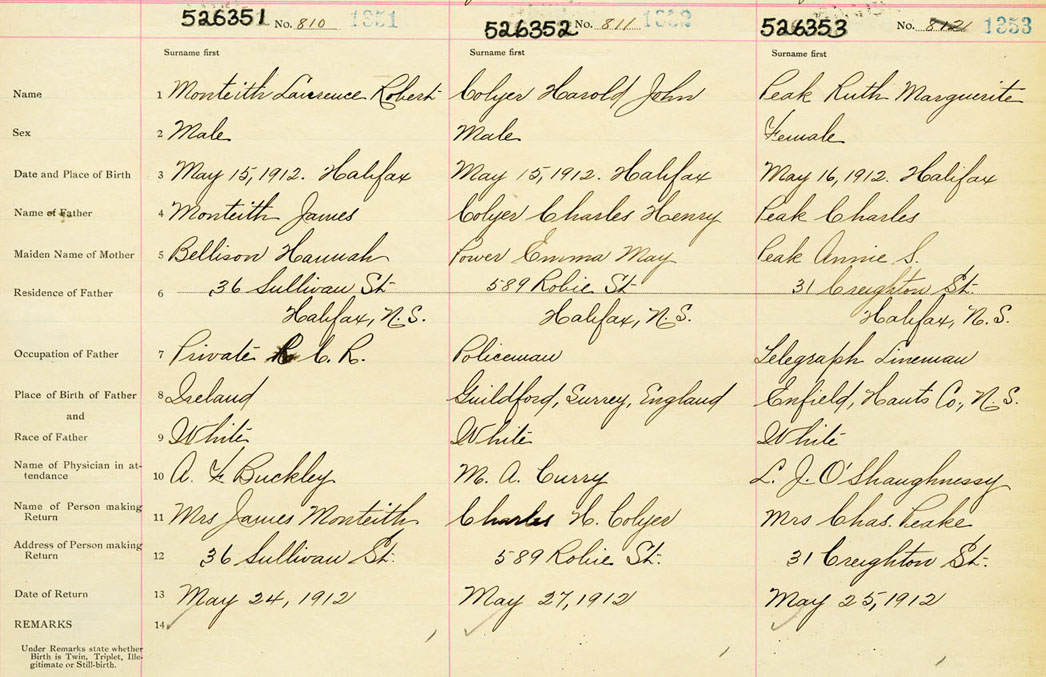 526351 No. 810 1351 526352 No. 811 1352 526353 No. 812 1353
Surname first Surname first Surname first
Name 1 Monteith Lawrence Robert Colyer Harold John Peak Ruth Marguerite
Sex 2 Male Male Female
Date and Place of Birth 3 May 15, 1912. Halifax May 15, 1912. Halifax May 16, 1912. Halifax
Name of Father 4 Monteith James Colyer Charles Henry Peak Charles
Maiden Name of Mother 5 Bellison Hannah Power Emma May Peak Annie S.
Residence of Father 6 36 Sullivan St. 589 Robie St. 31 Creighton St.
Halifax, N.S. Halifax, N.S. Halifax, N.S.
Occupation of Father 7 Private R.C.R. Policeman Telegraph Lineman
Place of Birth of Father 8 Ireland Guildford, Surrey, England Enfield, Hants Co., N.S.
and
Race of Father 9 White White White
Name of Physician in at-
tendance 10 A. F. Buckley M. A. Curry L. J. O'Shaughnessy
Name of Person making
Return 11 Mrs James Monteith Charles H. Colyer Mrs Chas. Peake
Address of Person making
Return 12 36 Sullivan St. 589 Robie St. 31 Creighton St.
Date of Return 13 May 24, 1912 May 27, 1912 May 25, 1912
REMARKS 14
Under Remarks state whether
Birth is Twin, Triplet, Ille-
gitimate or Still-birth.